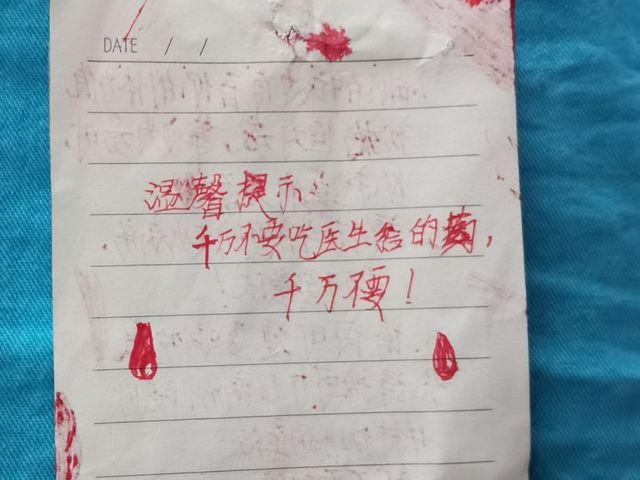 DATE / /
温馨提示：
千万不要吃医生给的药，
千万不要！